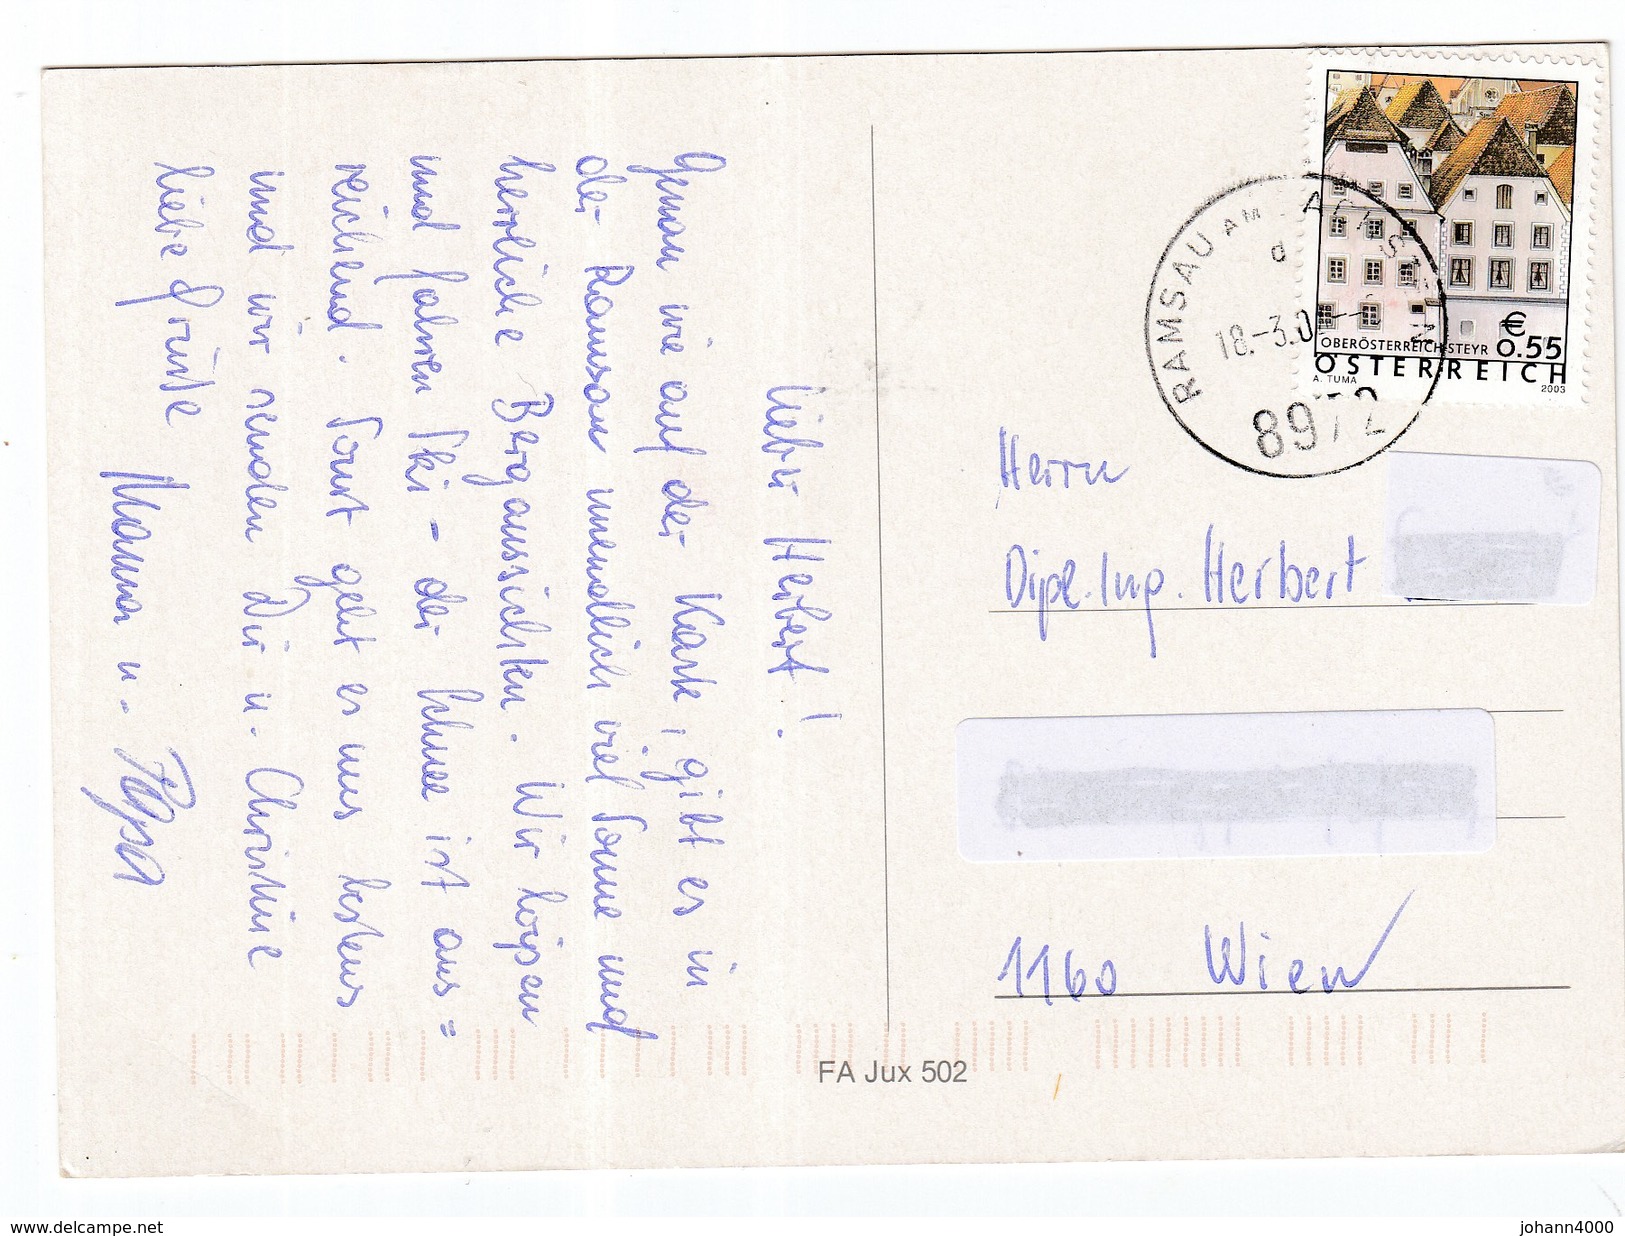 Lieber Herbert!
Genau wie auf der Karte, gibt es in
der Ramsau unendlich viel Sonne und
herrliche Bergaussichten. Wir loipen
und fahren Ski - der Schnee ist aus=
reichend. Sonst geht es uns bestens
und wir senden Dir u. Christine
liebe Grüße
Mama u. Papa
RAMSAU AM DACHSTEIN
d
18.-3.0
8972
€
0.55
OBERÖSTERREICH-STEYR
ÖSTERREICH
A. TUMA
2003
Herrn
Dipl. Ing. Herbert
1160 Wien
FA Jux 502
www.delcampe.net
johann4000